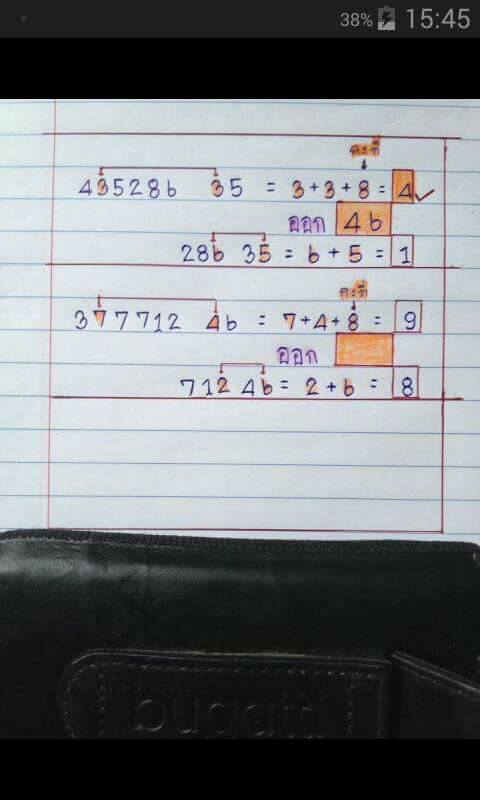 38% 15:45
คงที่
435286 35 = 3+3+8 = 4 ✓
ออก 46
286 35 = 6 + 5 = 1
คงที่
377712 46 = 7+4+8 = 9
ออก
712 46 = 2 + 6 = 8
bugatti